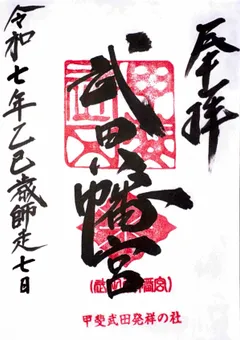 奉拝
武田八幡宮
令和七年乙巳歳師走七日
甲斐武田発祥の社